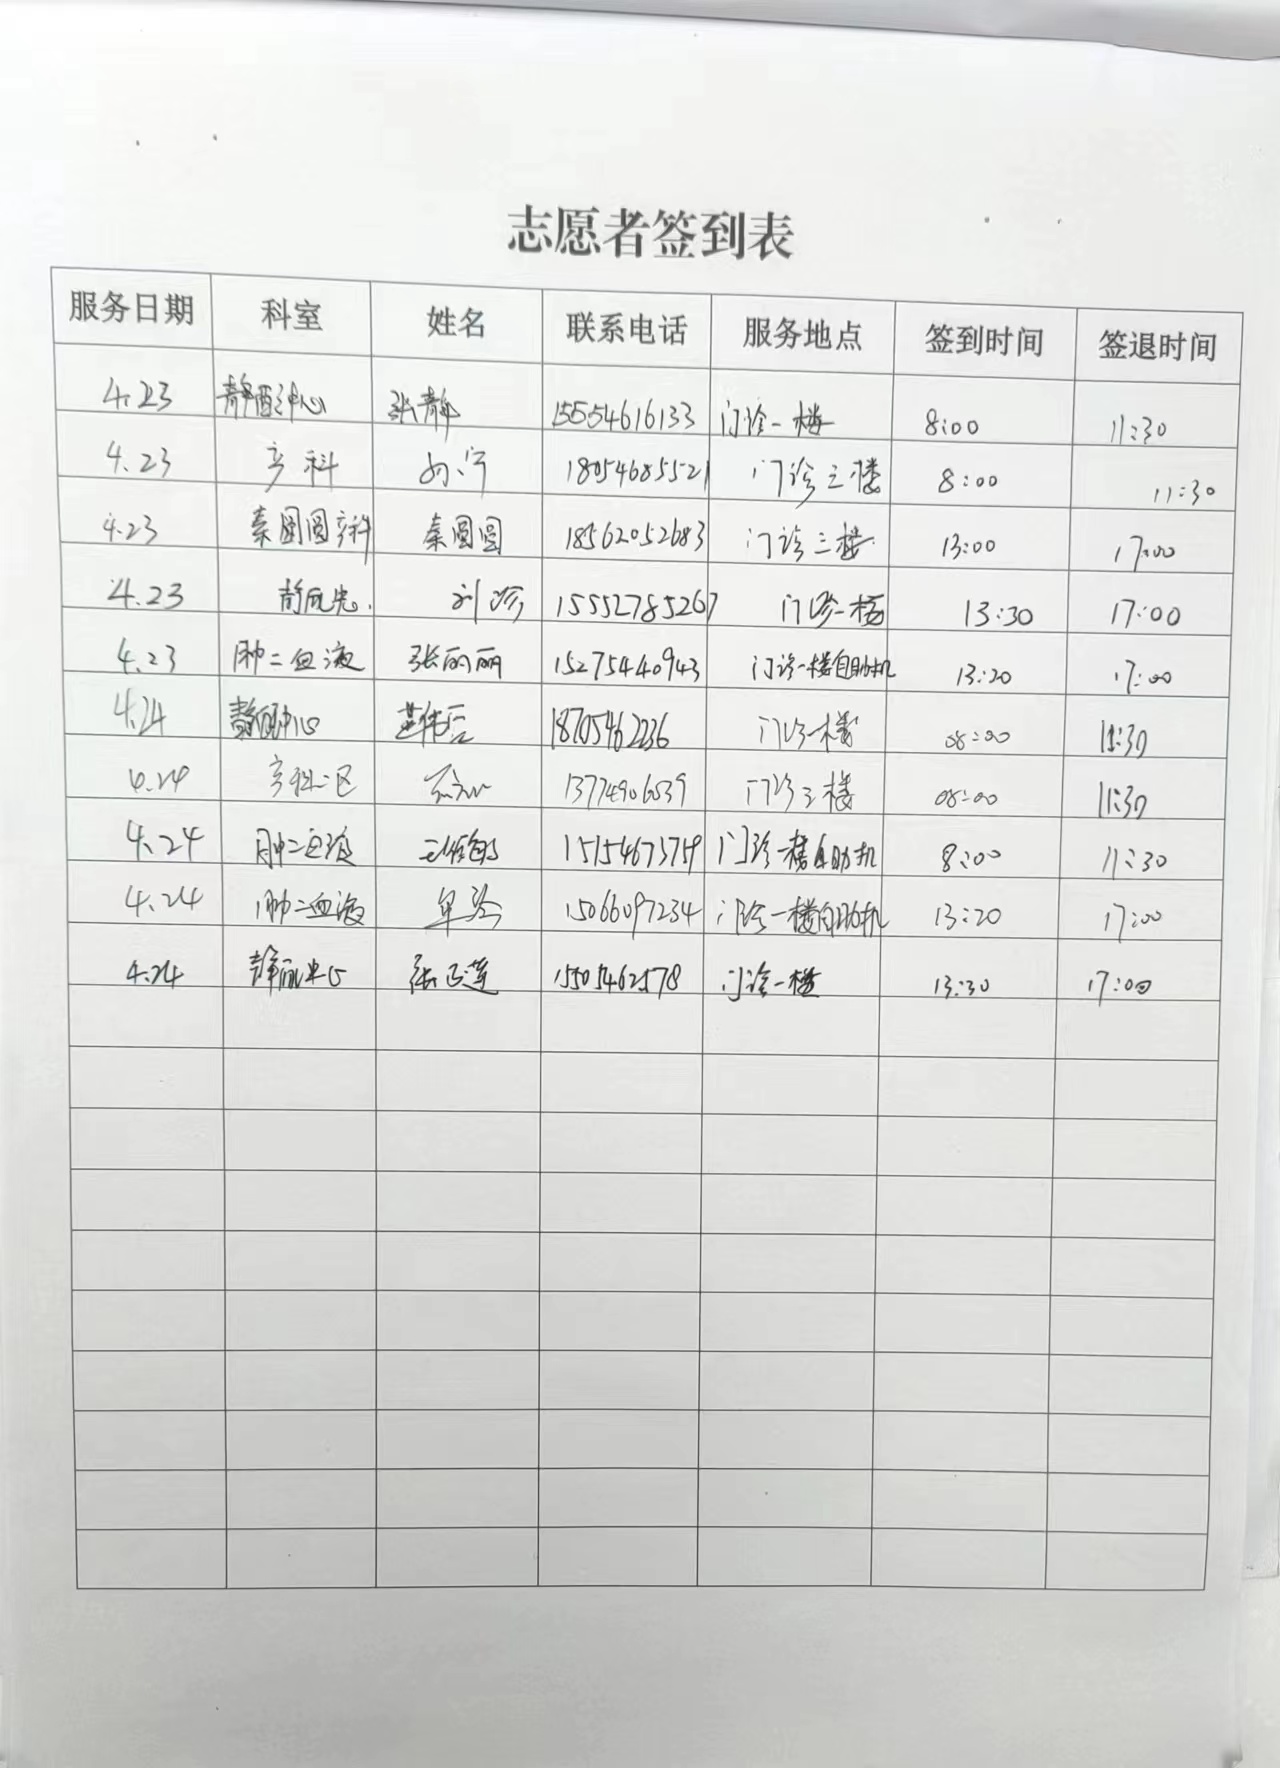 志愿者签到表
服务日期 科室 姓名 联系电话 服务地点 签到时间 签退时间
4.23 静配中心 张静 15554616133 门诊一楼 8:00 11:30
4.23 产科 孙宁 18054685521 门诊三楼 8:00 11:30
4.23 秦圆圆产科 秦圆圆 18562052683 门诊三楼 13:00 17:00
4.23 刘 15552785267 门诊一楼 13:30 17:00
4.23 肿二血液 张丽丽 15275440943 门诊一楼自助机 13:20 17:00
4.24 静配中心 门诊一楼 08:00 11:30
4.24 产科一区 13774906539 门诊三楼 08:00 11:30
4.24 肿二血液 门诊一楼自助机 8:00 11:30
4.24 肿二血液 15066097234 门诊一楼自助机 13:20 17:00
4.24 静配中心 张 莲 15505462578 门诊一楼 13:30 17:00